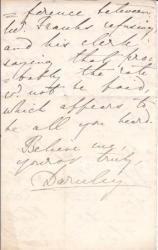 = ference between
Mr. Franks refusing,
and his clerk
saying that pro=
bably the rate
wd. not be paid,
which appears to
be all you heard.
Believe me,
yours truly,
Darnley